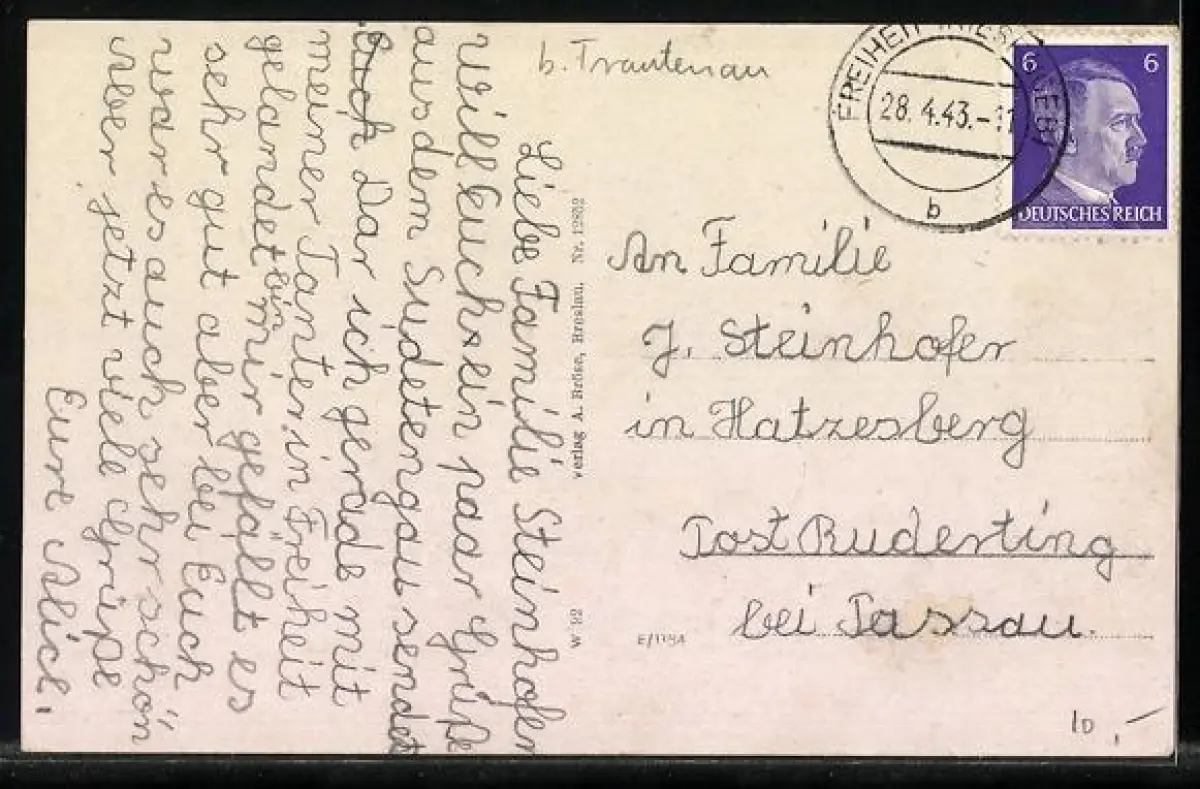 b. Trautenau
28.4.43.-11
b
6 6
DEUTSCHES REICH
Liebe Familie Steinhofer
Will Euch ein paar Grüße
aus dem Sudetengau sendet
Dar ich gerade mit
meiner Tante in Freiheit
gelandet bin mir gefällt es
sehr gut aber bei Euch
war es auch sehr schön
Aber jetzt viele Grüße
Eure Alice.
Verlag A. Bröse, Breslau, Nr. 12852
W 92
An Familie
J. Steinhofer
in Hatzesberg
Post Ruderting
bei Passau.
E/1794
10,-